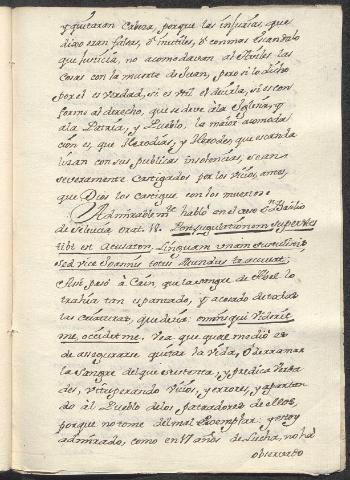 y quitaran Cabeza, porque las injurias, que
dixo eran falsas, ó inutiles, ó con mas escandalo
que Justicia, no acomodavan al
cosas con la muerte de Juan, pero si lo dicho
por el es verdad, si es util el decirla, si es con
forme al derecho, que se deve à la Iglesia, y
à la Patria, y Pueblo, la maior acomoda
cion es, que Herodias, y Herodes, que escanda
lizan con sus publicas insolencias, sean
severamente castigados por los vicios, antes,
que Dios los castigue con los muertos.
Admirablem.te habló en el caso S.n Basilio
de Seleucia orat. 18. superstes
tibi est Accusator, Linguam unam
sed vice Joannis totus Mundus te accusat:
Assi pasó à Cain, que la sangre de Abel lo
trahia tan espantado, y acosado de todas
las criaturas, que decia: omnis qui viderit
me, occidet me. Vea que qual medio es
de asegurarse quitar la vida, ó derramar
la sangre del que sustenta, y predica verda
des, vituperando vicios, y errores, y apartan
do al Pueblo de los patradores de ellos,
porque no tome del mal exemplar: y estoy
admirado, como en 17 años de lucha, no ha
observado